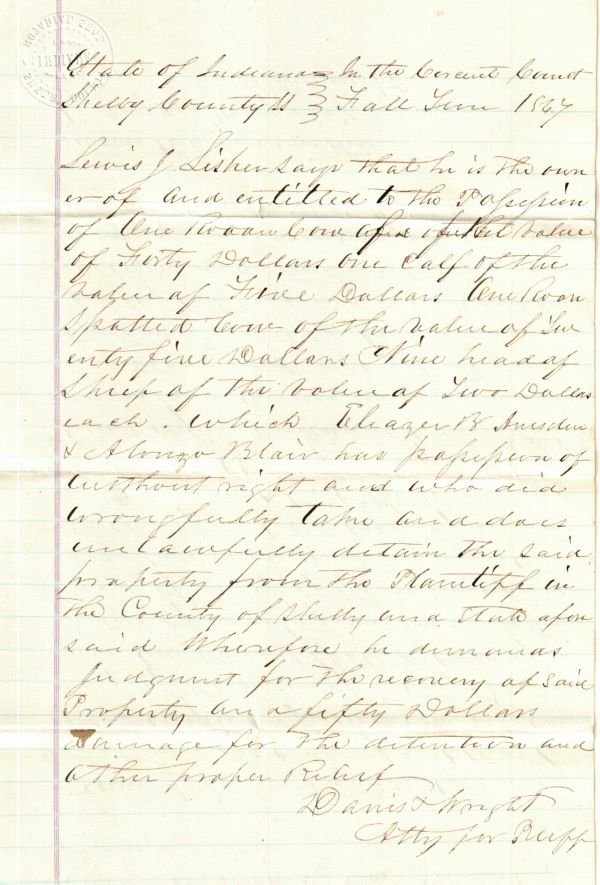 State of Indiana } In the Cercut Court
Shelby County SS } Fall Term 1867
Lewis J Lisher says that he is the own
er of and entitled to the Possession
of One Roan Cow of the Value
of Forty Dollars one calf of the
Value of Five Dollars One Roan
Spotted Cow of the value of Twe
enty five Dollars Nine head of
Sheep of the value of Two Dollars
each. which Eliazer B
& Alonzo Blair has possession of
without right and who did
wrongfully take and does
unlawfully detain the said
property from the Plaintiff in
the County of Shelby and State afore
said Wherefore he demands
Judgment for the recovery of said
Property an a fifty Dollars
damage for the detention and
other proper Relief
Davis & Wright
Atty for Plff